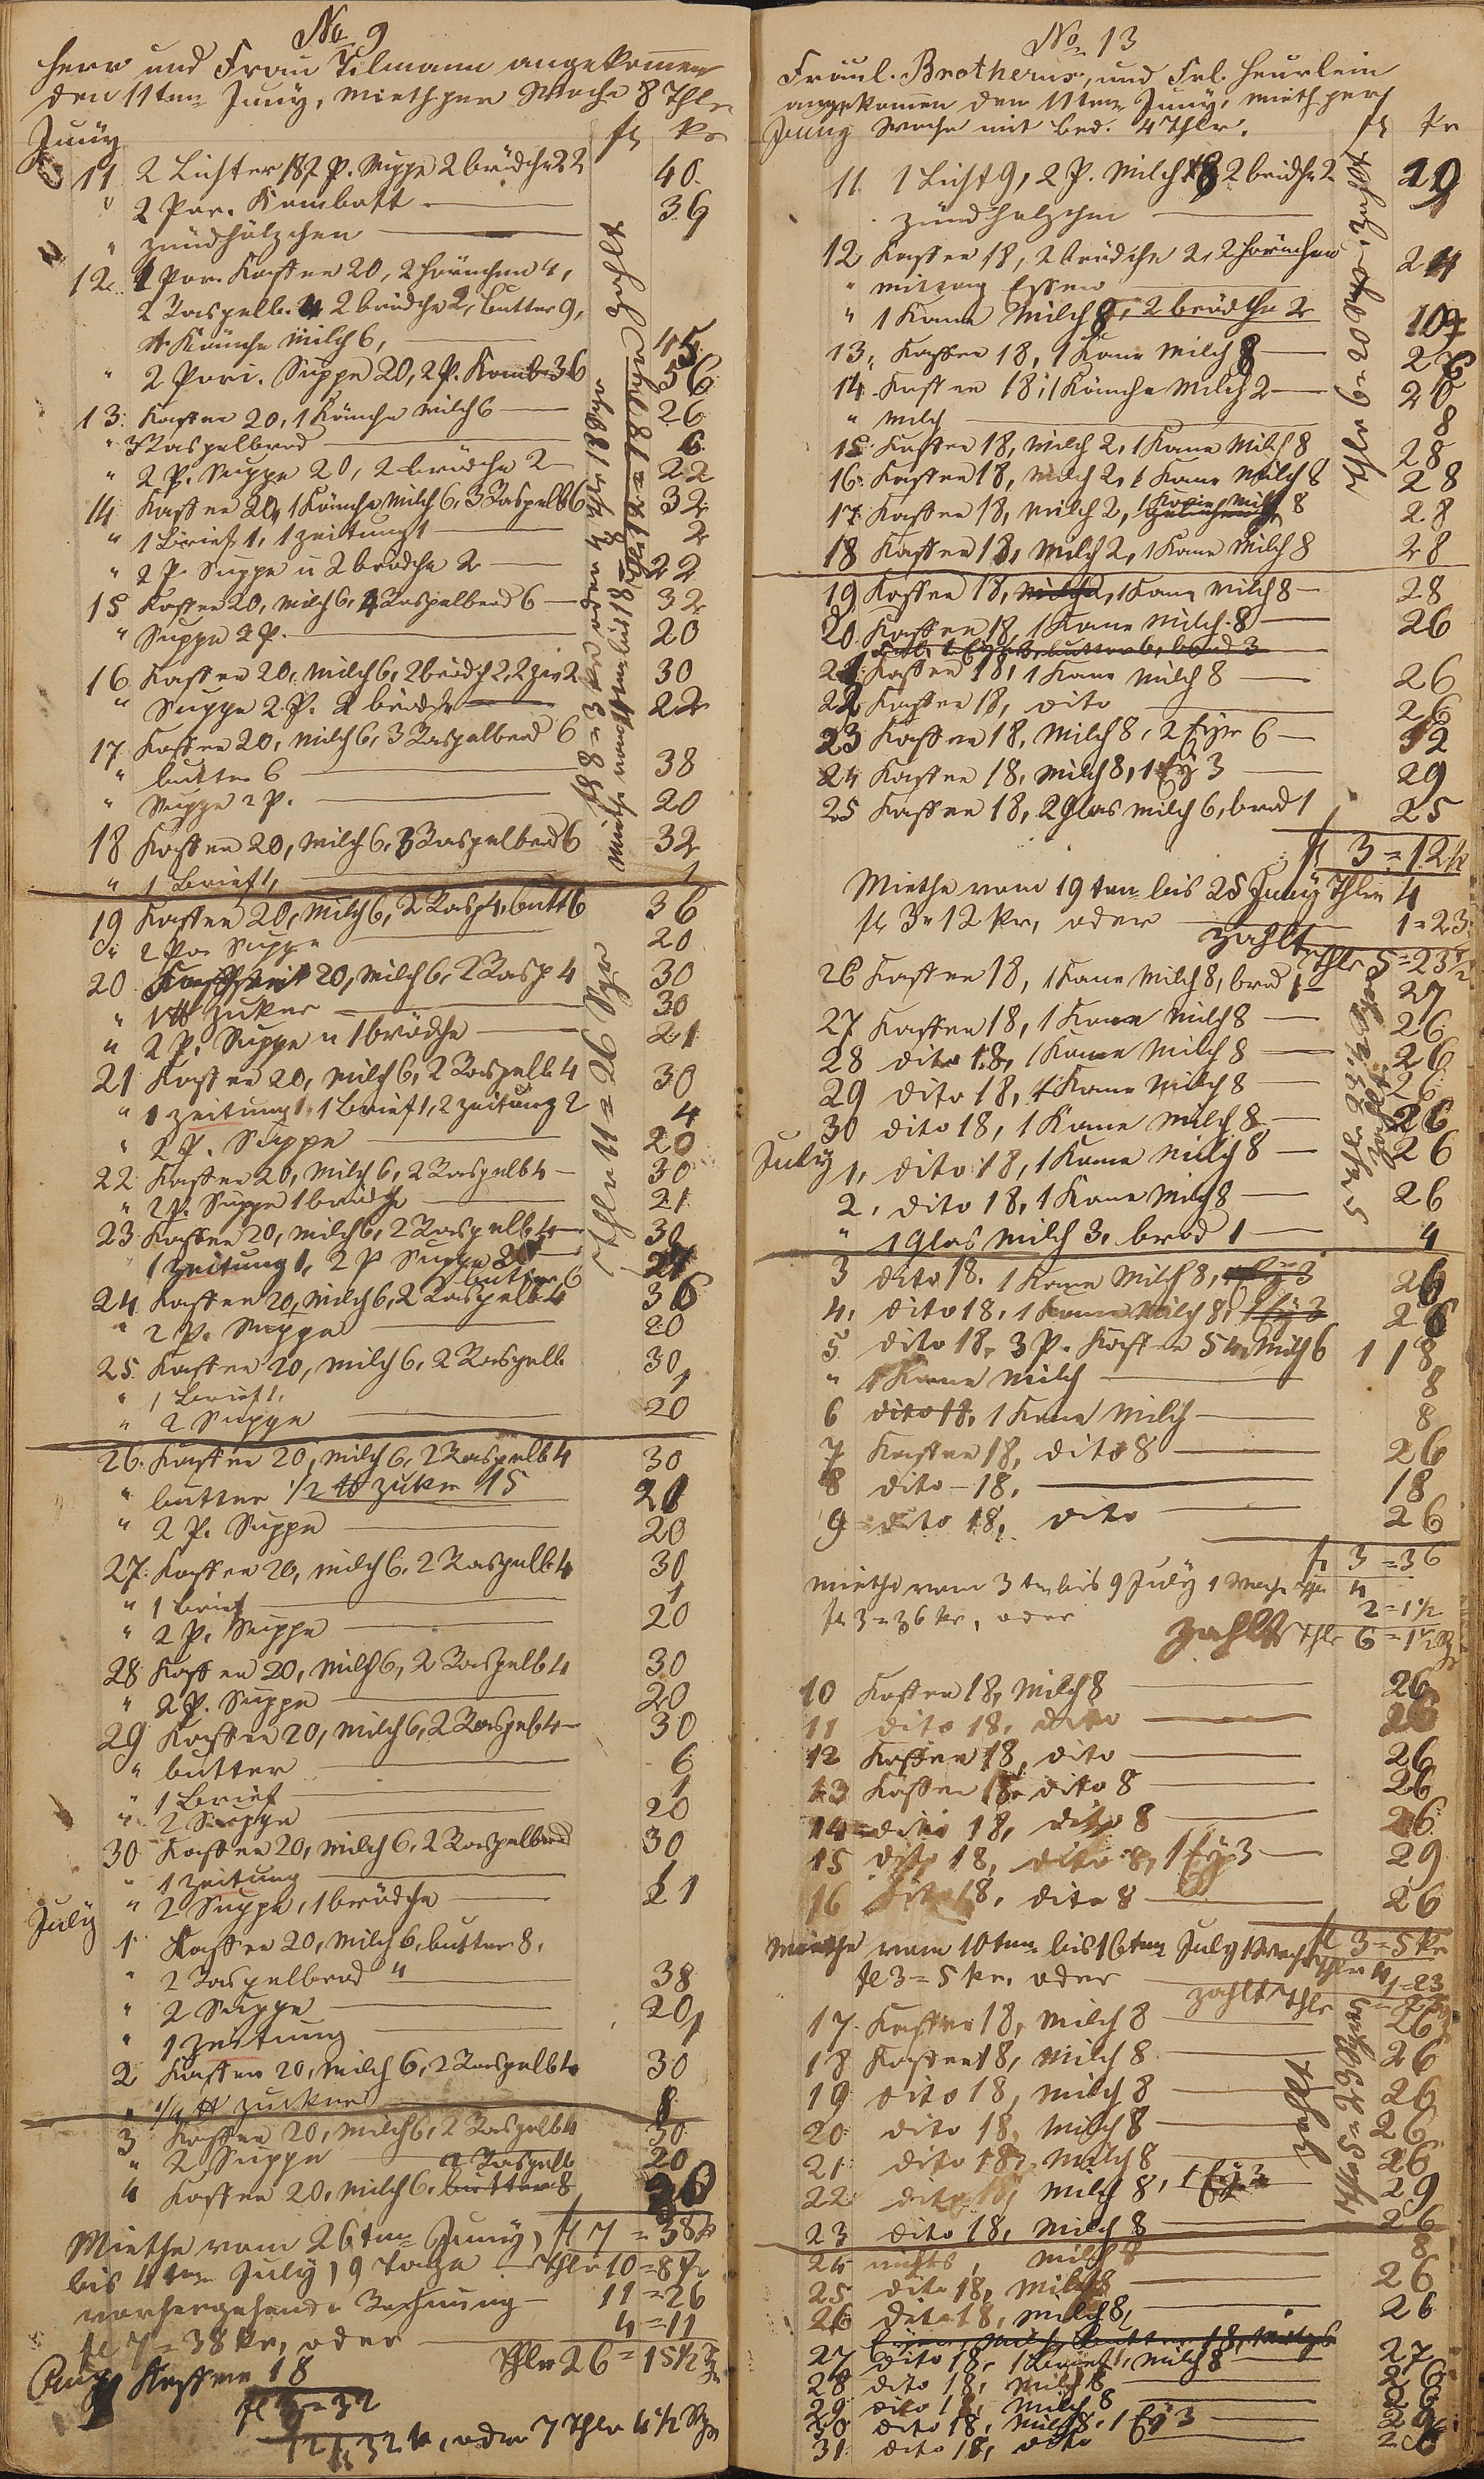 No 9
Herr und Frau Tilmann angekommen
den 11ten Juny, Mieth per Woche 8 Thlr
Juny fl kr
11 2 Lichter 18, 2 P. Suppe 2 brödch 22 40
" 2 Por. Kombott 36
" zündhölzchen
12. 1 Por. Kaffee 20, 2 Hörnchen 4,
2 Raspelb. 4 2 brödche 2, butter 9,
Känche Milch 6, 45
" 2 Pori. Suppe 20, 2 P. Komb 36 56
13. Kaffee 20, 1 Känche Milch 6 26
" 3 Raspelbrod 6
" 2 P. Suppe 20, 2 brödche 2 22
14 Kaffee 20, 1 Känche Milch 6, 3 Raspelb 6 32
" 1 Brief 1, 1 zeitung 1 2
" 2 P. Suppe u 2 brödche 2 22
15 Kaffee 20, Milch 6, Raspelbrod 6 32
" Suppe 2 P. 20
16 Kaffee 20, Milch 6, 2 brödch 2, 2 30
" Suppe 2. P. 2 brödch 22
17. Kaffee 20, Milch 6, 3 Raspelbrod 6
" butter 6 38
" Suppe 2 P. 20
18 Kaffee 20, Milch 6, 3 Raspelbrod 6 32
" 1 Brief 1, 1
19 Kaffee 20, Milch 6, 2 Rasp 4, butt 6 36
" 2 Por Suppe 20
20 20, Milch 6, 2 Rasp 4 30
" 1 ℔ Zuker 30
" 2 P. Suppe u 1 brödche 21
21 Kaffee 20, Milch 6, 2 Raspelb 4 30
" 1 zeitung 1, 1 Brief 1, 2 zeitung 2 4
" 2 P. Suppe 20
22 Kaffee 20, Milch 6, 2 Raspelb 4 30
" 2 P. Suppe 1 brödche 21
23 Kaffee 20, Milch 6, 2 Raspelb 4 30
1 zeitung 1, 2 P Suppe 20 21
butter 6
24 Kaffee 20, Milch 6, 2 Raspelb 4 36
" 2 P. Suppe 20
25. Kaffee 20, Milch 6, 2 Raspelb 30
" 1 Brief 1, 1
" 2 Suppe 20
26. Kaffee 20, Milch 6, 2 Raspelb 4 30
" butter 1/2 ℔ Zuker 15 21
" 2 P. Suppe 20
27. Kaffee 20, Milch 6, 2 Raspelb 4 30
" 1 Brief 1
" 2 P. Suppe 20
28 Kaffee 20, Milch 6, 2 Raspelb 4 30
" 2 P. Suppe 20
29 Kaffee 20, Milch 6, 2 Raspelb 4 30
" butter 6
" 1 Brief 1
" 2 Suppe 20
30 Kaffee 20, Milch 6, 2 Raspelbrod 30
" 1 zeitung
" 2 Suppe, 1 brödche 21
July
1 Kaffee 20, Milch 6, butter 8,
" 2 Raspelbrod 4 38
" 2 Suppe 20
" 1 Zeitung 1
2 Kaffee 20, Milch 6, 2 Raspelb 4 30
" 1/4 ℔ Zucker 8
3 Kaffee 20, Milch 6, 2 Raspelb 4 30
" 2 Suppe 20
2 Raspelb
4 Kaffee 20, Milch 6, butter 8 30
Miethe vom 26ten Juny, fl 7 = 38 kr
bis 4ten July, 9 Tage Thlr 10 = 8
vorhergehende Rechnung 11 = 26
fl 7 = 38 kr, oder 4 = 11
Thlr 26 = 15 1/2
Kaffee 18
12 fl. 32 kr, oder 7 Thlr 4 1/2 Sgr
Miethe vom 11ten bis 18
zahlt
Thlr 11 = 26 Sgr
No 13
Fräul. Brotherus, und Frl. Heurlein
angekommen den 11ten Juny, Mieth per
Juny Woche mit Bed. 4 Thlr. fl kr
11 1 Licht 9, 2 P. Milch 8 2 brödch 2 19
zündhölzchen 1
12 Kaffee 18, 2 brödche 2, 2 Hörnchen 24
" mittag Essen
" 1 Kane Milch 8, 2 brödche 2 10
13. Kaffee 18, 1 Kane Milch 8 26
14. Kaffee 18, 1 Känche Milch 2 20
" Milch 8
15. Kaffee 18, Milch 2, 1 Kane Milch 8 28
16. Kaffee 18, Milch 2, 1 Kane Milch 8 28
17 Kaffee 18, Milch 2, 1 Kane Milch 8 28
18 Kaffee 18, Milch 2, 1 Kane Milch 8 28
19 Kaffee 18, Milch 2, 1 Kane Milch 8 28
20. Kaffee 18, 1 Kane Milch 8 26
21. Kaffee 18, 1 Kane Milch 8 26
22 Kaffee 18, dito 26
23 Kaffee 18, Milch 8, 2 Eyer 6 32
24 Kaffee 18, Milch 8, 1 Ey 3 29
25 Kaffee 18, 2 glas Milch 6, brod 1 25
fl 3 = 12 kr
Miethe vom 19ten bis 25 Juny Thlr 4
fl 3 = 12 kr, oder 1 = 23
zahlt Thlr 5 = 23 1/2
26 Kaffee 18, 1 Kane Milch 8, brod 1 27
27 Kaffee 18, 1 Kane Milch 8 26
28 dito 18, 1 Kane Milch 8 26
29 dito 18, 1 Kane Milch 8 26
30 dito 18, 1 Kane Milch 8 26
July 1, dito 18, 1 Kane Milch 8 26
2, dito 18, 1 Kane Milch 8 26
" 1 glas Milch 3, brod 1 4
3 dito 18, 1 Kane Milch 8, 1 Ey 3 26
4, dito 18, 1 Kane Milch 8, 1 Ey 3 26
5 dito 18, 3 P. Kaffee 54 Milch 6 1 18
" 1 Kane Milch 8
6 dito 18, 1 Kane Milch 8
7 Kaffee 18, dito 8 26
8 dito 18, 18
9 dito 18, dito 26
fl 3 = 36
Miethe vom 3ten bis 9 July 1 Woche 4
fl 3 = 36 kr, oder 2 = 1 1/2
zahlt Thlr 6 = 1 1/2 Sgr
10 Kaffee 18, Milch 8 26
11 dito 18, dito 26
12 Kaffee 18, dito 26
13 Kaffee 18 dito 8 26
14 dito 18, dito 8 26
15 dito 18, dito 8, 1 Ey 3 29
16 dito 18, dito 8 26
fl 3 = 5 kr
Miethe vom 10ten bis 16ten July 1 Woche Thlr 4
fl 3 = 5 kr, oder 1 = 23
zahlt Thlr
17. Kaffee 18, Milch 8 26
18 Kaffee 18, Milch 8 26
19 dito 18, Milch 8 26
20 dito 18, Milch 8 26
21 dito 18, Milch 8 26
22 dito 18, Milch 8, 1 Ey 3 29
23 dito 18, Milch 8 26
24 nichts, Milch 8 8
25 dito 18, Milch 8 26
26 dito 18, Milch 8, 26
27 dito 18, 1 Brief 1, Milch 8 27
28 dito 18, Milch 8 26
29 dito 18, Milch 8 26
30 dito 18, Milch 8, 1 Ey 3 29
31 dito 18, dito 26
zahlt